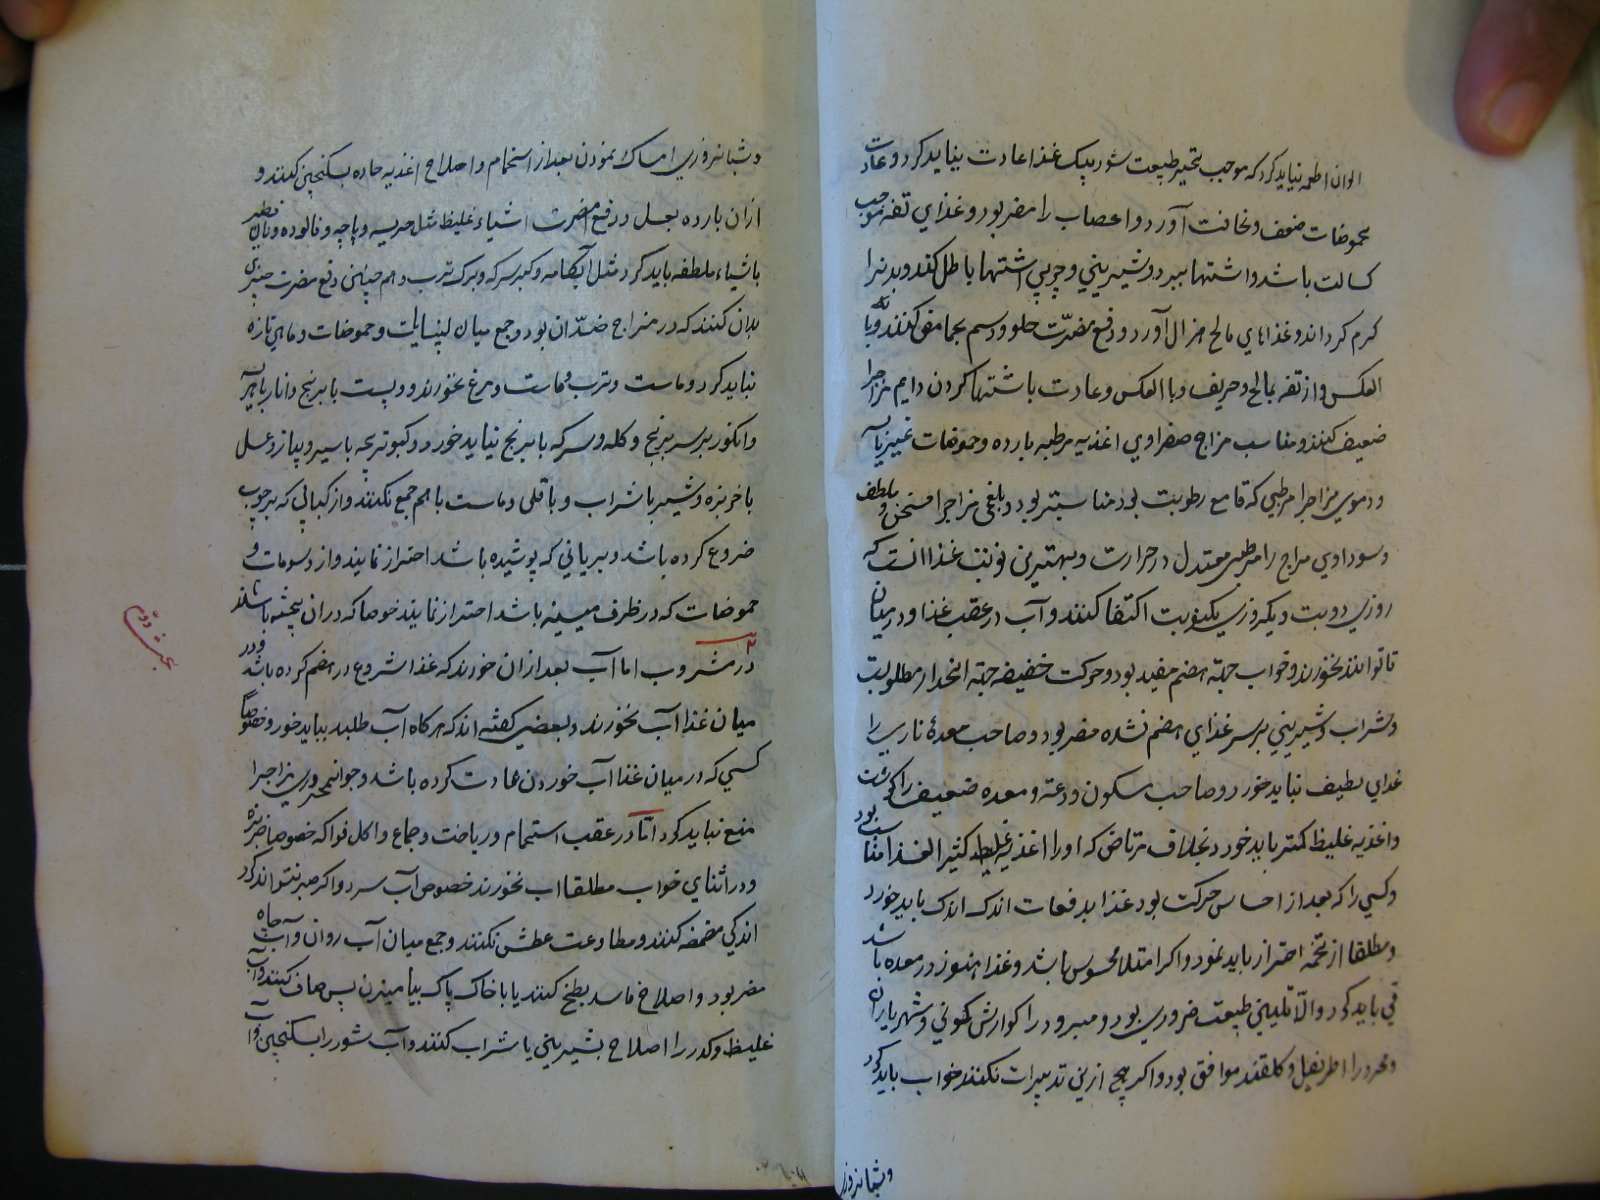 الوان اطعمه نباید کرد که موجب تحیر طبیعت شود و بیک غذا عادت نباید کرد و عادت
بحموضات ضعف و نحافت آورد و اعصاب را مضر بود و غذای تفه موجب
کسالت باشد و اشتها ببرد و شیرینی و چربی اشتها باطل کند و بدنرا
کرم کرداند و غذاهای مالح هزال آورد و دفع مضرّت حلو و دسم بحامض کنند و با
لعکس و از تفه بمالح و حریف و با العکس و عادت باشتها کردن دایم مزاجرا
ضعیف کند و مناسب مزاج صفراوی اغذیه مرطبه بارده و حموضات
و دموی مزاجرا مرطبی که قامع رطوبت بود مناسبتر بود و بلغمی مزاجرا مسخن و ملطف
و سوداوی مزاج را مرطبی معتدل در حرارت و بهترین نوبت غذا انست که
روزی دو نوبت و یکروزی یکنوبت اکتفا کنند و آب در عقب غذا و در میان
تا توانند نخورند و خواب جهة هضم مفید بود و حرکت خفیفه جهة انحدار مطلوبست
و شراب و شیرینی بر سر غذای هضم نشده مضر بود و صاحب معدهٔ ناری را
غذای لطیف نباید خورد و صاحب سکون و دعة و معده ضعیف را کوشت
و اغذیه غلیظ کمتر باید خورد بخلاف مرتاض که او را اغذیه غلیظ کثیر الغذا مناسب بود
و کسی را که بعد از احساس حرکت بود غذا بدفعات اندک اندک باید خورد
و مطلقا از تخمه احتراز باید نمود و اکر امتلا محسوس باشد و غذا هنوز در معده باشد
قی باید کرد و الّا تلیین طبیعت ضروری بود و مبرود را کوارش کمونی و شهریاران
و محرور را اطریفل و کلقند موافق بود و اکر هیچ ازین تدبیرات نکنند خواب باید کرد
و شبانروزی
و شبانروزی امساک نمودن بعد از استحمام و اصلاح اغذیه حاده بسکنجبین کنند و
ازان بارده بعسل و رفع مضرت اشیاء غلیظ مثل هریسه و پاچه و فالوده و نان فطیر
باشیاء ملطفه باید کرد مثل آبکامه و کبر سرکه و برک ترب و همچنین دفع مضرت چیزی
بدان کنند که در مزاج ضدّ ان بود و جمع میان لبنیات و حموضات و ماهی تازه
نباید کرد و ماست و ترب و ماست و مرغ نخورند و پست با برنج و انار با هریسه
و انکور بر سر برنج و کله و سرکه با برنج نباید خورد و کبوتر بچه با سیر و پیاز و عسل
با خربزه و شیر با شراب و باقلی و ماست با هم جمع نکنند و از کبابی که بر چوب
خروع کرده باشد و بریانی که پوشیده باشد احتراز نمایند و از دسومات و
حموضات که در ظرف مسینه باشد احتراز نمایند خصوصا که دران پخته باشند
در مشروب اما آب بعد ازان خورند که غذا شروع در هضم کرده باشد و در
میان غذا آب نخورند و بعضی کفته اند که هر کاه آب طلبد بباید خورد خصوصا
کسی که در میان غذا آب خوردن عادت کرده باشد و جوانمحروری مزاجرا
منع نباید کرد امّا در عقب استحمام و ریاضت و جماع و اکل فواکه خصوصا خربزه
و در اثنای خواب مطلقا اب نخورند خصوص آب سرد و اکر صبر نتوانند کرد
اندکی مضمضه کنند و مطاوعت عطش نکنند و جمع میان آب روان و آب چاه
مضر بود و اصلاح فاسد بطبخ کنند یا با خاک پاک بیامیزند پس صاف کنند و آب
غلیظ و کدر را اصلاح بشیرینی یا شراب کنند و آب شور را بسکنجبین و آب
بخش دوّم